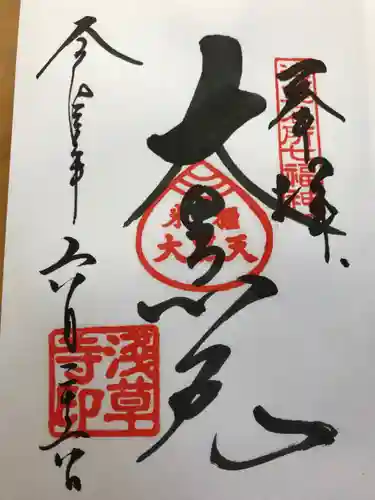 奉拝
浅草名所七福神
大黒天
米櫃大黒天
令和元年
六月二十六日
浅草寺印